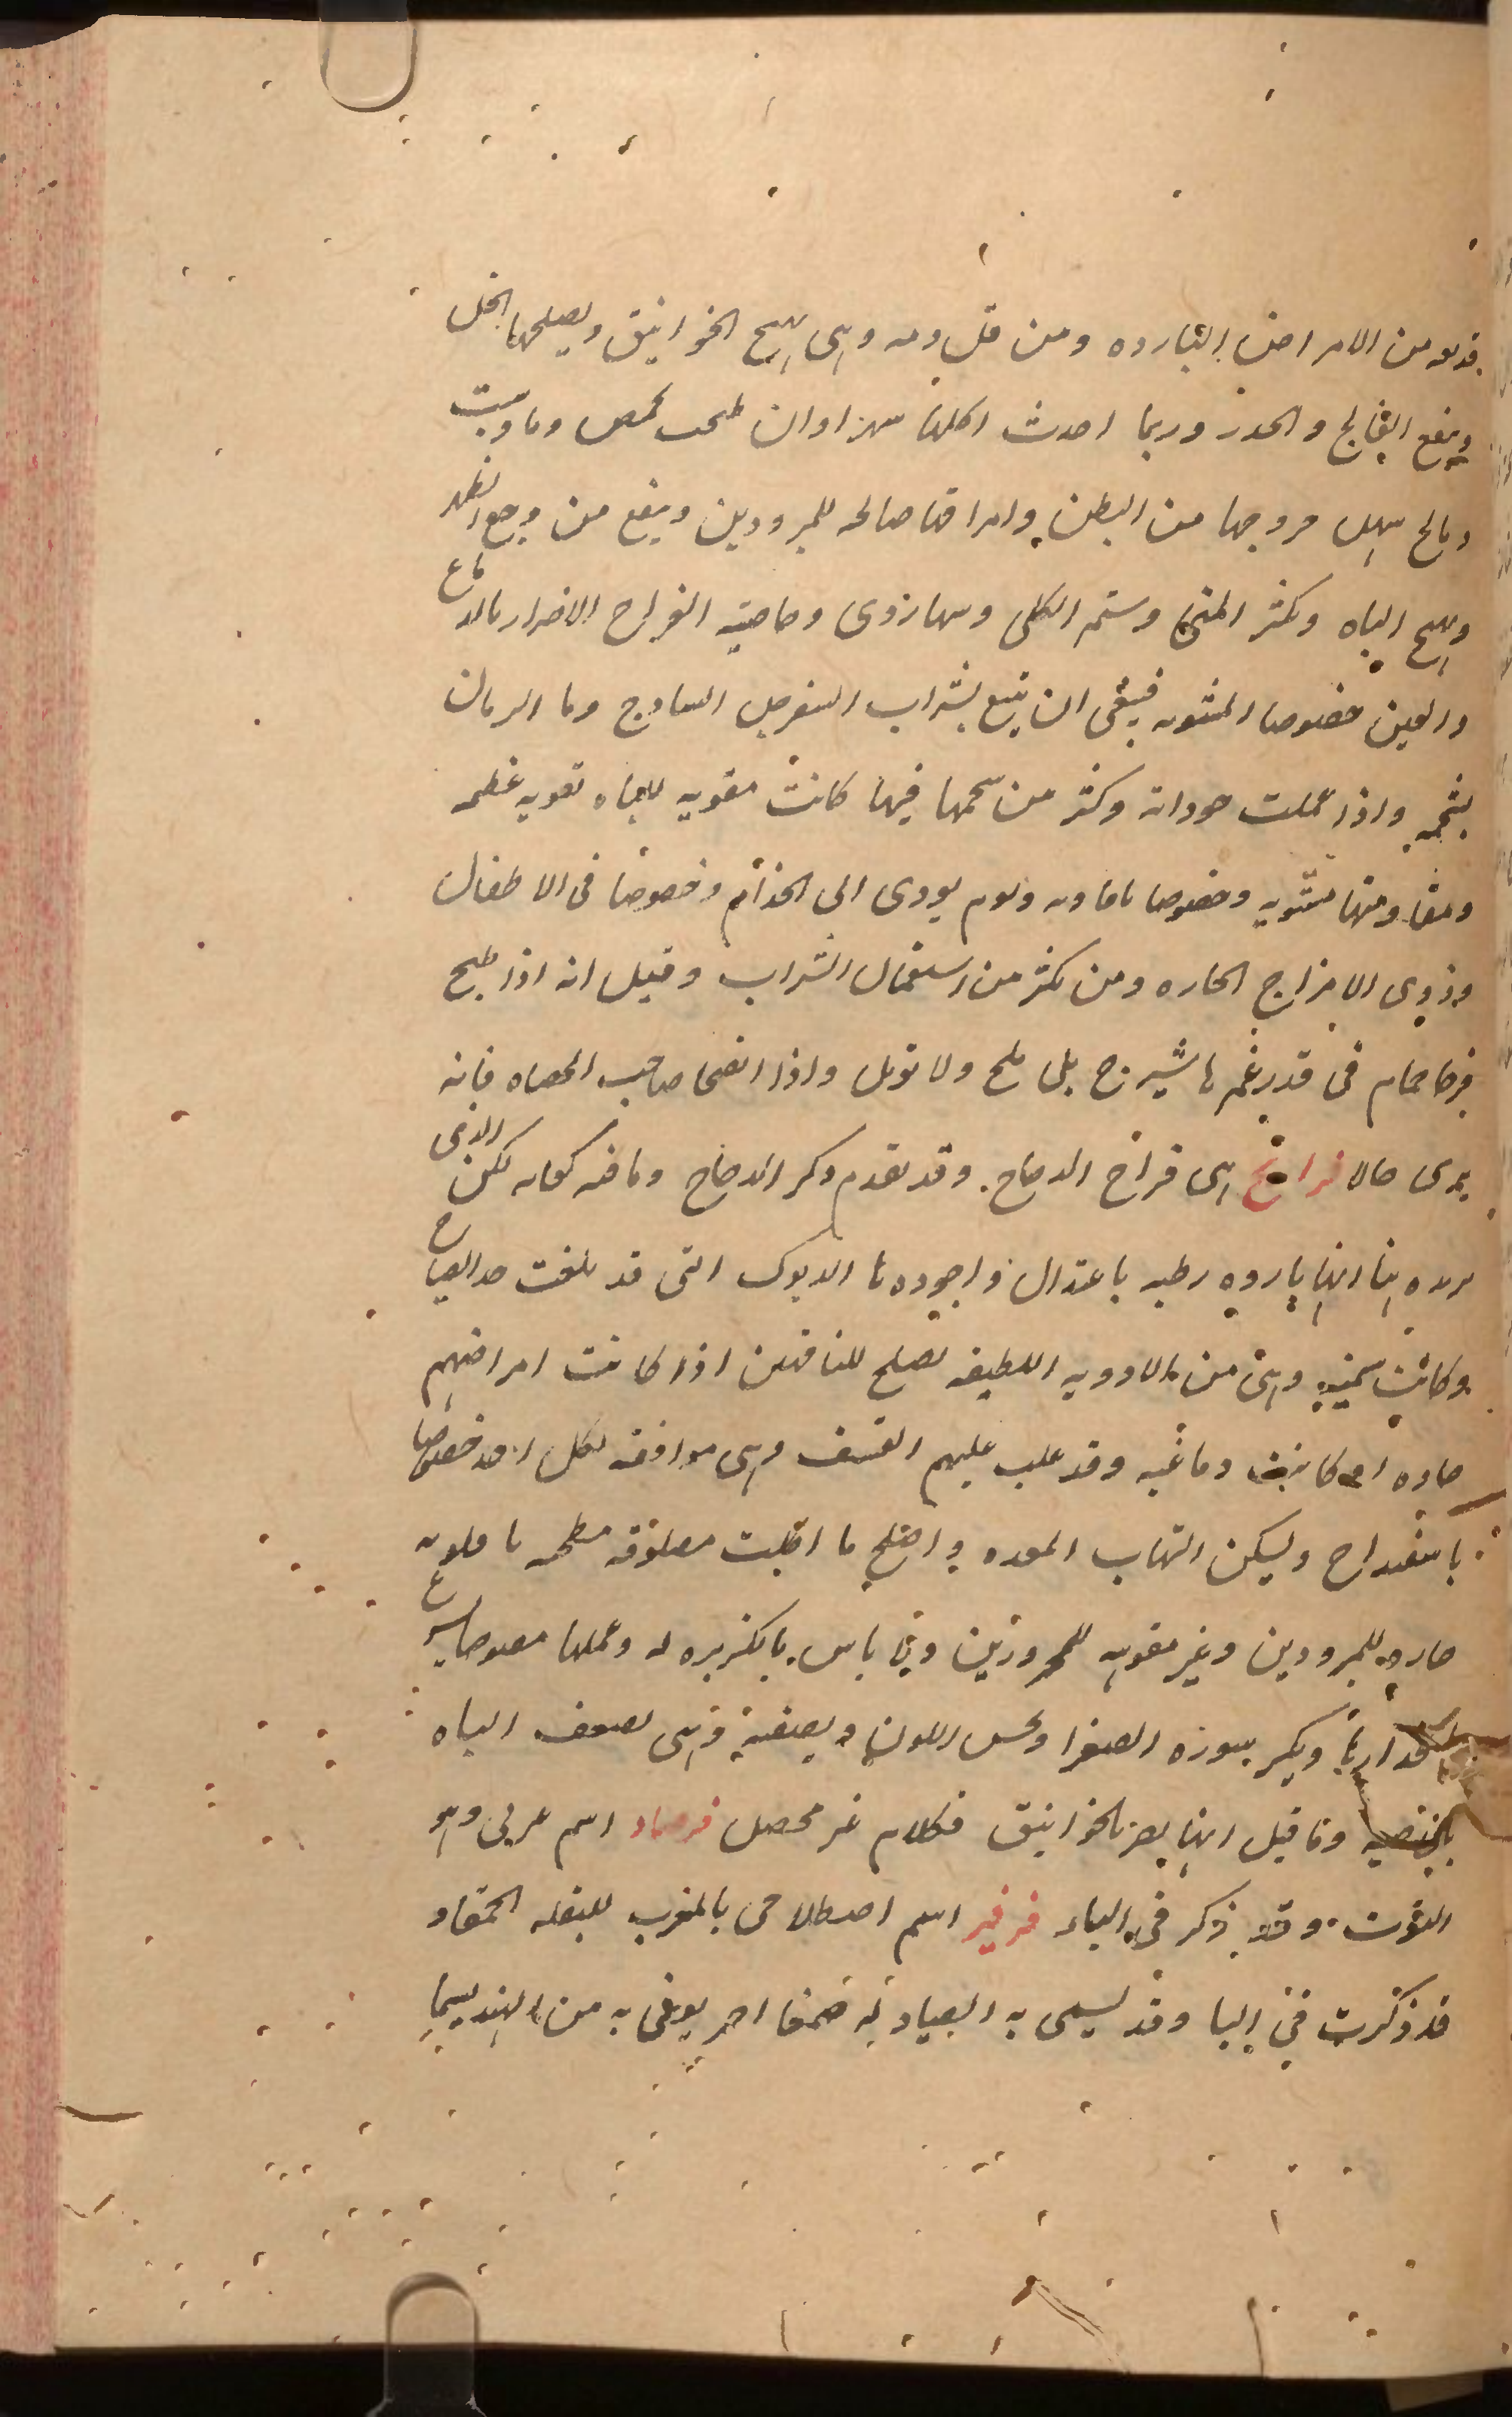 بدنه من الامراض البارده ومن قل دمه وهى تهيج الخوانيق ويصلحها الخل
وينفع الفالج والخدر وربما احدث اكلها سهرا وان طبخت بحمص وماء وشبت
وملح سهل خروجها من البطن وامراقها صالحه للمبرودين وينفع من وجع الظهر
وتهيج الباه وتكثر المنى وسخن الكلى وخاصيه الفراخ الاضرار بالدماغ
والعين خصوصا المشويه فينبغى ان يتبع بشراب السفرجل الساذج وماء الرمان
بشحمه واذا عملت جوذابه وكثر من شحمها فيها كانت مقويه للباه تقويه عظيمه
ومنها مشويه وخصوصا يودى الى الجذام وخصوصا فى الاطفال
وذوى الامزاج الحاره ومن يكثر من استعمال الشراب وقيل انه اذا طبخ
فرخا حمام فى قدر غمرها شيرج بلا ملح ولا توبل واذا صاحب الحصاه فانه
يبرى حالا فراريج هى فراخ الدجاج. وقد تقدم ذكر الدجاج وما فيه كفايه لكن الذى
نريده هنا انها بارده رطبه باعتدال واجودها الديوك التى قد بلغت حد الصياح
وكانت سمينه وهى من الادويه اللطيفه تصلح للناقهين اذا كانت امراضهم
حاده او كانت دماغيه وقد غلب عليهم القشف وهى موافقه لكل احد خصوصا
باسفيداج وليسكن التهاب المعده واصلح ما اكلت مصلوقه مطجنه
حاره للمبرودين وغير مقويه للمحرورين ولا باس بالكزبره له وعملها مصوصا يسرع
انحدارها ويكسر سوره الصفرا ويحسن اللون ويصفيه وهى تضعف الباه
بالخاصيه وما قيل انها يضر بالخوانيق فكلام غير محصل فرصاد اسم عربى وهو
التوت وقد ذكر فى التاء فرفير اسم اصطلاحى بالمغرب للبقله الحمقاء
قد ذكرت فى البا وقد يسمى به الصيادنه صمغا احمر يوتى به من الهند يسمى